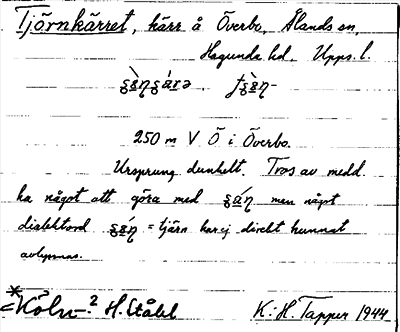 Tjörnkärret, kärr å Överbo, Ålands sn,
Hagunda hd. Upps. l.
250 m V Ö i Överbo.
Ursprung dunkelt. Tros av medd.
ha något att göra med men något
dialektord = tjärn har ej direkt kunnat
avlyssnas.
*Köln-? H. Ståhl K.-H. Tapper 1944